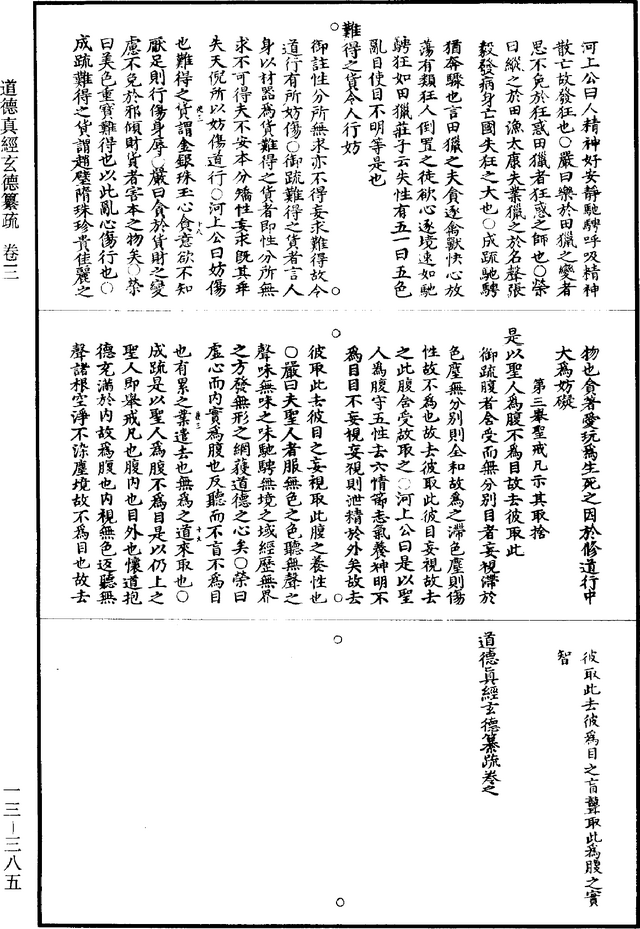 道德真經玄德纂疏 卷三
一三－三八五
河上公曰人精神好安靜馳騁呼吸精神
散亡故發狂也○嚴曰樂於田獵之變者
思不免於狂惑田獵者狂惑之師也○榮
曰縱之於田漁太康失業獵之於名聲張
毅發病身亡國失狂之大也○成疏馳騁
猶奔驟也言田獵之夫貪逐禽獸快心放
蕩有類狂人倒置之徒欲心逐境速如馳
騁狂如田獵莊子云失性有五一曰五色
亂目使目不明等是也
難得之貨令人行妨
御註性分所無求亦不得妄求難得故令
道行有所妨傷○御疏難得之貨者言人
身以材器為貨難得之貨者即性分所無
求不可得夫不安本分矯性妄求既其乖
失天倪所以妨傷道行○河上公曰妨傷
也難得之貨謂金銀珠玉心貪意欲不知
猒足則行傷身辱○嚴曰貪於貨財之變
慮不免於邪傾財貨者害本之物矣○榮
曰美色重寶難得也以此亂心傷行也○
成疏難得之貨謂趙璧隋珠珍貴佳麗之
物也貪著愛玩為生死之因於修道行中
大為妨礙
第三舉聖戒凡示其取捨
是以聖人為腹不為目故去彼取此
御疏腹者含受而無分別目者妄視滯於
色塵無分別則全和故為之滯色塵則傷
性故不為也故去彼取此彼目妄視故去
之此腹含受故取之○河上公曰是以聖
人為腹守五性去六情節志氣養神明不
為目目不妄視妄視則泄精於外矣故去
彼取此去彼目之妄視取此腹之養性也
○嚴曰夫聖人者服無色之色聽無聲之
聲味無味之味馳騁無境之域經歷無界
之方發無形之網獲道德之心矣○榮曰
虛心而內實為腹也反聽而不盲不為目
也有累之業遣去也無為之道來取也○
成疏是以聖人為腹不為目是以仍上之
聖人即舉戒凡也腹內也目外也懷道抱
德充滿於內故為腹也內視無色返聽無
聲諸根空淨不染塵境故不為目也故去
彼取此去彼為目之盲聾取此為腹之實
智
道德真經玄德纂疏卷之